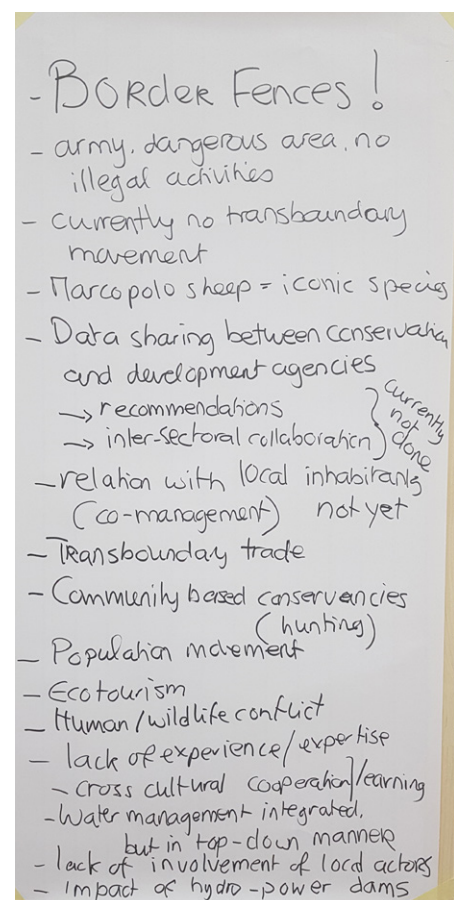 - Border Fences!
- army, dangerous area, no
illegal activities
- currently no transboundary
movement
- Marcopolo sheep = iconic species
- Data sharing between conservation
and development agencies
→ recommendations
→ inter-sectoral collaboration
currently
not
done
- relation with local inhabitants
(co-management) not yet
- Transbounday trade
- Community based conservancies
(hunting)
- Population movement
- Ecotourism
- Human/wildlife conflict
- lack of experience/expertise
- cross cultural cooperation/learning
- Water management integrated,
but in top-down manner
- lack of involvement of local actors
- Impact of hydro-power dams